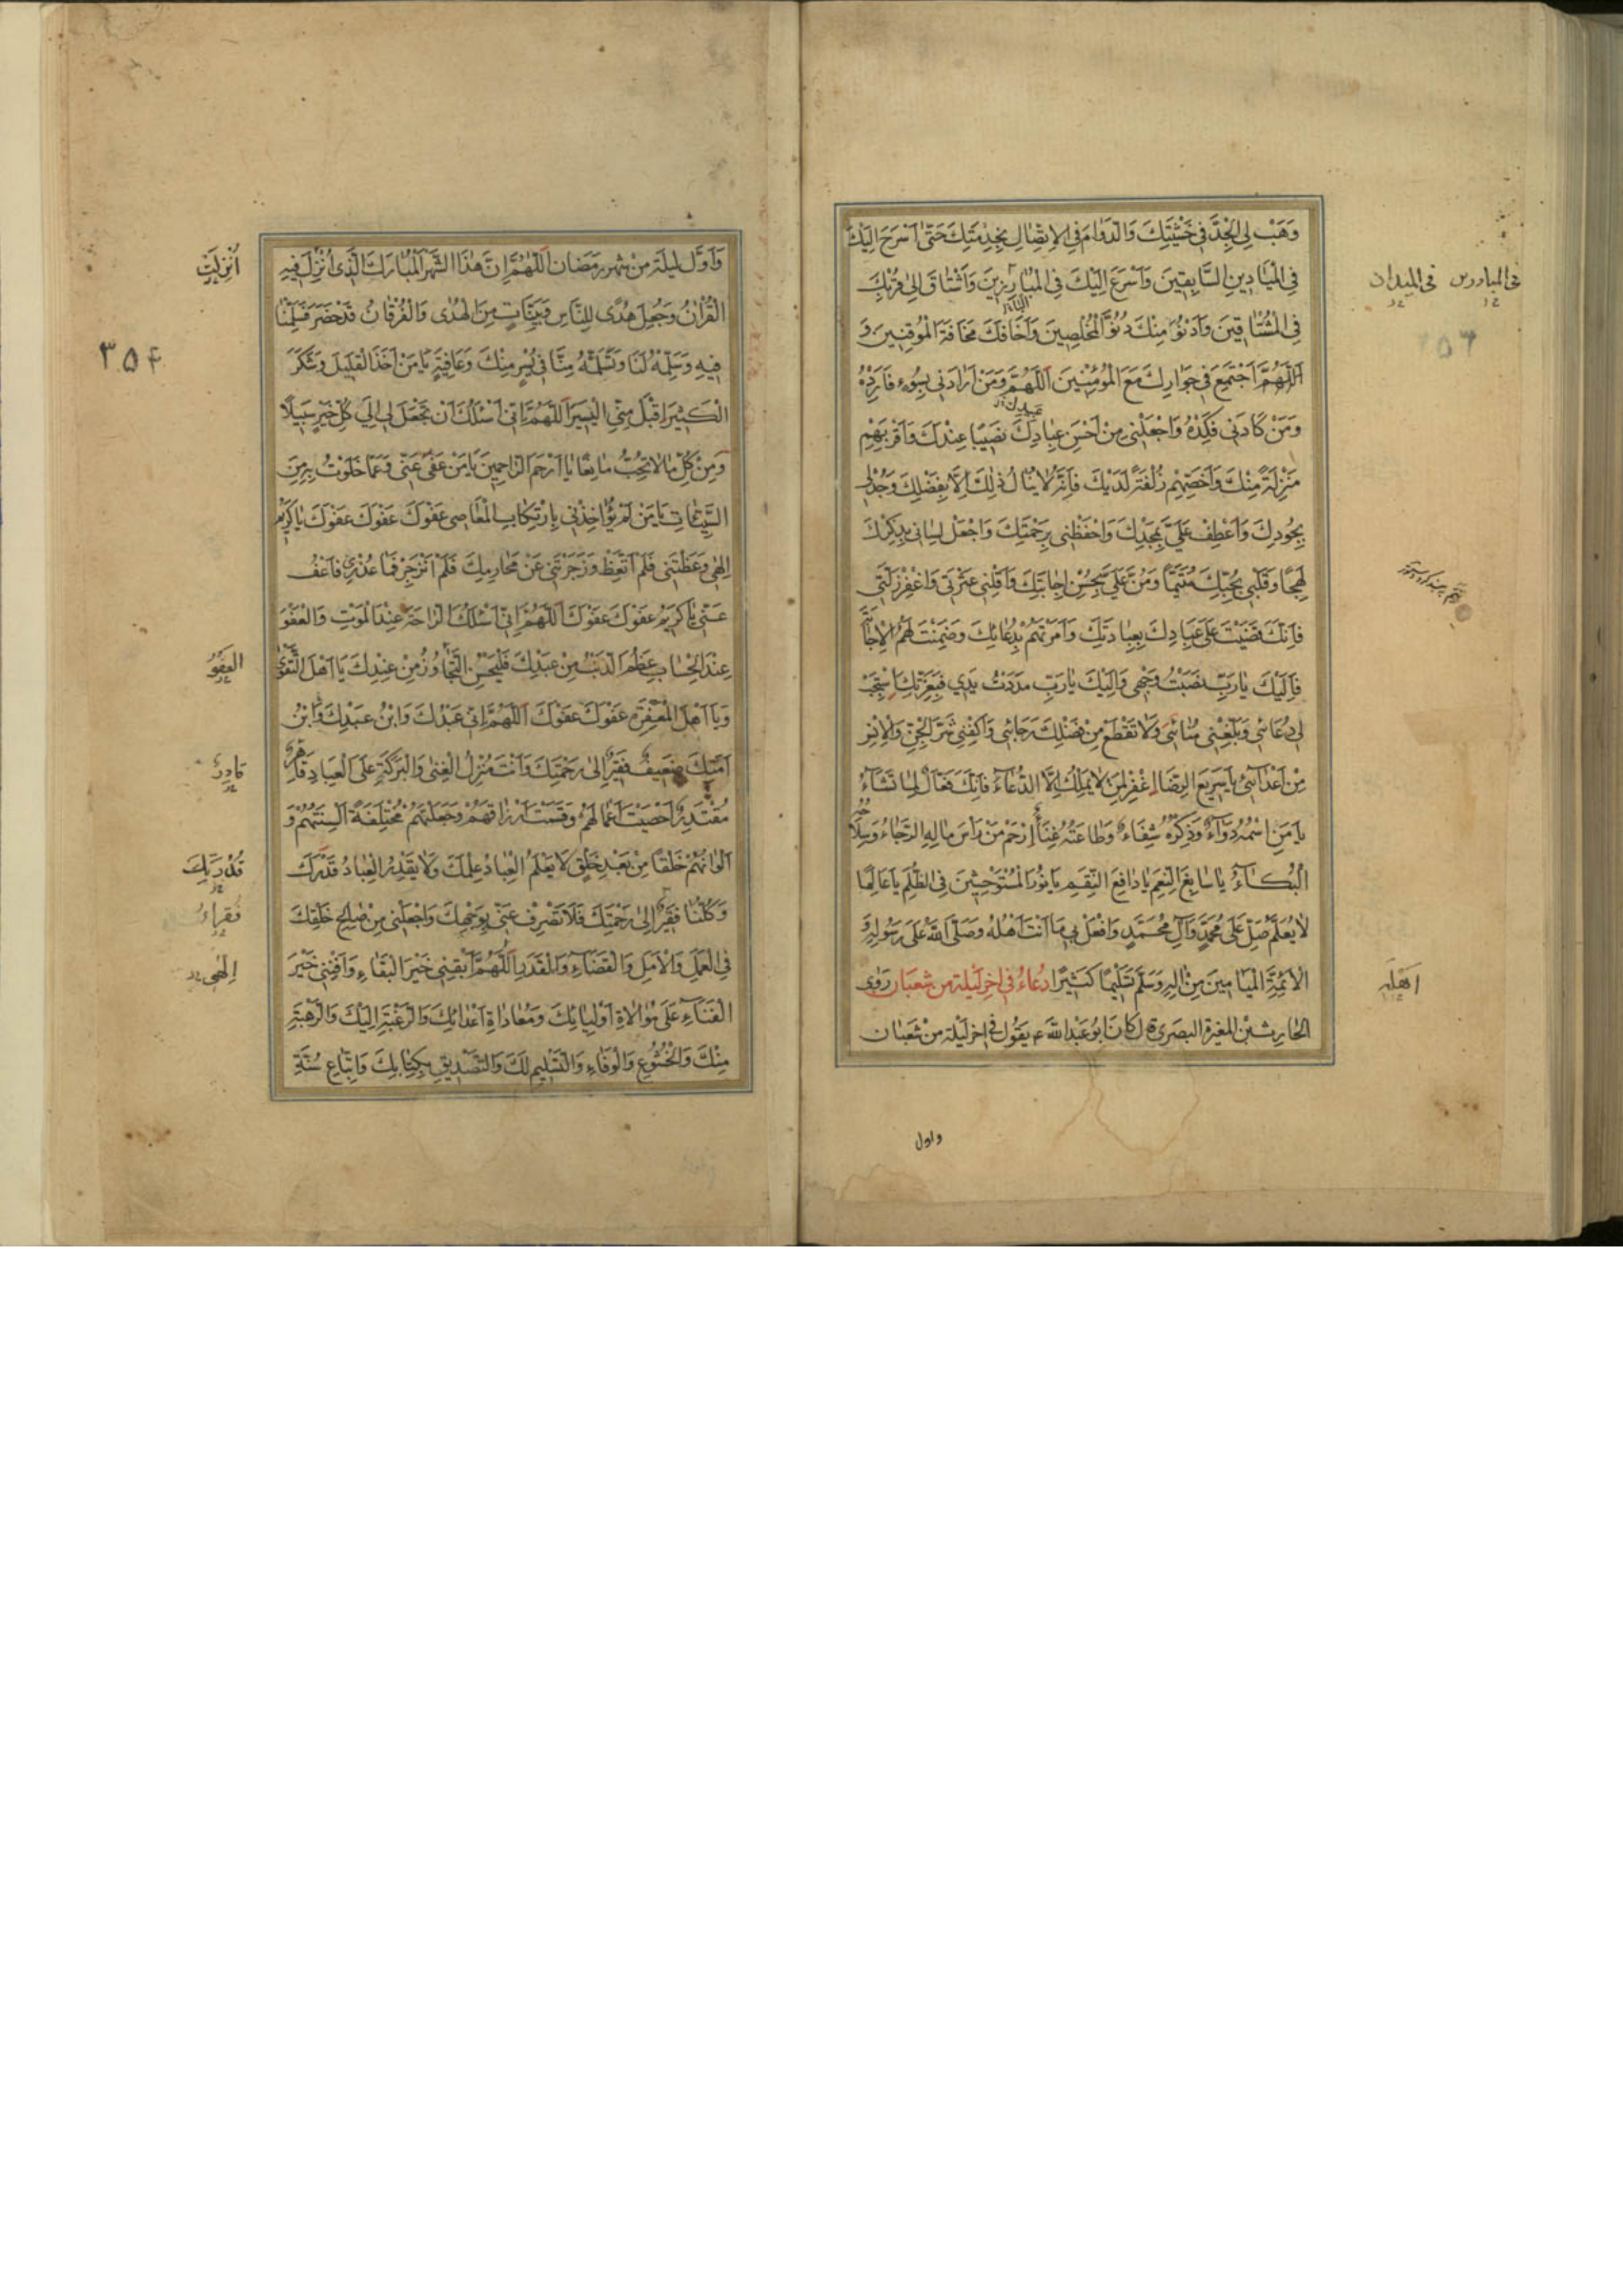 وَهَبْ لِيَ الْجِدَّ فِي خَشْيَتِكَ وَالدَّوَامَ فِي الْاِتِّصَالِ بِخِدْمَتِكَ حَتّٰى اَسْرَحَ اِلَيْكَ
فِي الْمَيَادِينِ السَّابِقِينَ وَاَسْرَعَ اِلَيْكَ فِي الْمُبَارِزِينَ وَاَشْتَاقَ اِلٰى قُرْبِكَ
فِي الْمُشْتَاقِينَ وَاَدْنُوَ مِنْكَ دُنُوَّ الْمُخْلِصِينَ وَاَخَافَكَ مَخَافَةَ الْمُوقِنِينَ وَ
اَجْتَمِعَ فِي جِوَارِكَ مَعَ الْمُؤْمِنِينَ اَللّٰهُمَّ وَمَنْ اَرَادَنِي بِسُوءٍ فَاَرِدْهُ
وَمَنْ كَادَنِي فَكِدْهُ وَاجْعَلْنِي مِنْ اَحْسَنِ عِبَادِكَ نَصِيبًا عِنْدَكَ وَاَقْرَبِهِمْ
مَنْزِلَةً مِنْكَ وَاَخَصِّهِمْ زُلْفَةً لَدَيْكَ فَاِنَّهُ لَا يُنَالُ ذٰلِكَ اِلَّا بِفَضْلِكَ وَجُدْ لِي
بِجُودِكَ وَاَعْطِفْ عَلَيَّ بِمَجْدِكَ وَاحْفَظْنِي بِرَحْمَتِكَ وَاجْعَلْ لِسَانِي بِذِكْرِكَ
لَهِجًا وَقَلْبِي بِحُبِّكَ مُتَيَّمًا وَمُنَّ عَلَيَّ بِحُسْنِ اِجَابَتِكَ وَاَقِلْنِي عَثْرَتِي وَاغْفِرْ زَلَّتِي
فَاِنَّكَ قَضَيْتَ عَلٰى عِبَادِكَ بِعِبَادَتِكَ وَاَمَرْتَهُمْ بِدُعَائِكَ وَضَمِنْتَ لَهُمُ الْاِجَابَةَ
فَاِلَيْكَ يَا رَبِّ نَصَبْتُ وَجْهِي وَاِلَيْكَ يَا رَبِّ مَدَدْتُ يَدِي فَبِعِزَّتِكَ اسْتَجِبْ
لِي دُعَائِي وَبَلِّغْنِي مُنَائِي وَلَا تَقْطَعْ مِنْ فَضْلِكَ رَجَائِي وَاكْفِنِي شَرَّ الْجِنِّ وَالْاِنْسِ
مِنْ اَعْدَائِي يَا سَرِيعَ الرِّضَا اِغْفِرْ لِمَنْ لَا يَمْلِكُ اِلَّا الدُّعَاءَ فَاِنَّكَ فَعَّالٌ لِمَا تَشَاءُ
يَا مَنِ اسْمُهُ دَوَاءٌ وَذِكْرُهُ شِفَاءٌ وَطَاعَتُهُ غِنًى اِرْحَمْ مَنْ رَأْسُ مَالِهِ الرَّجَاءُ وَسِلَاحُهُ
الْبُكَاءُ يَا سَابِغَ النِّعَمِ يَا دَافِعَ النِّقَمِ يَا نُورَ الْمُسْتَوْحِشِينَ فِي الظُّلَمِ يَا عَالِمًا
لَا يُعَلَّمُ صَلِّ عَلٰى مُحَمَّدٍ وَآلِ مُحَمَّدٍ وَافْعَلْ بِي مَا اَنْتَ اَهْلُهُ وَصَلَّى اللّٰهُ عَلٰى رَسُولِهِ وَ
الْاَئِمَّةِ الْمَيَامِينَ مِنْ اٰلِهِ وَسَلَّمَ تَسْلِيمًا كَثِيرًا دُعَاءٌ فِي اٰخِرِ لَيْلَةٍ مِنْ شَعْبَانَ رَوٰى
الْحَارِثُ بْنُ الْمُغِيرَةِ الْبَصْرِي قَالَ كَانَ اَبُو عَبْدِ اللّٰهِ ع يَقُولُ فِي اٰخِرِ لَيْلَةٍ مِنْ شَعْبَانَ
واول
فی المبادرین
فی المیدان
اهله
وَاَوَّلِ لَيْلَةٍ مِنْ شَهْرِ رَمَضَانَ اَللّٰهُمَّ اِنَّ هٰذَا الشَّهْرَ الْمُبَارَكَ الَّذِي اُنْزِلَ فِيهِ
الْقُرْاٰنُ وَجُعِلَ هُدًى لِلنَّاسِ وَبَيِّنَاتٍ مِنَ الْهُدٰى وَالْفُرْقَانِ قَدْ حَضَرَ فَسَلِّمْنَا
فِيهِ وَسَلِّمْهُ لَنَا وَتَسَلَّمْهُ مِنَّا فِي يُسْرٍ مِنْكَ وَعَافِيَةٍ يَا مَنْ اَخَذَ الْقَلِيلَ وَشَكَرَ
الْكَثِيرَ اقْبَلْ مِنِّي الْيَسِيرَ اَللّٰهُمَّ اِنِّي اَسْئَلُكَ اَنْ تَجْعَلَ لِي اِلٰى كُلِّ خَيْرٍ سَبِيلًا
وَمِنْ كُلِّ مَا لَا تُحِبُّ مَانِعًا يَا اَرْحَمَ الرَّاحِمِينَ يَا مَنْ عَفٰى عَنِّي وَعَمَّا خَلَوْتُ بِهِ مِنَ
السَّيِّئَاتِ يَا مَنْ لَمْ يُؤَاخِذْنِي بِارْتِكَابِ الْمَعَاصِي عَفْوَكَ عَفْوَكَ عَفْوَكَ يَا كَرِيمُ
اِلٰهِي وَعَظْتَنِي فَلَمْ اَتَّعِظْ وَزَجَرْتَنِي عَنْ مَحَارِمِكَ فَلَمْ اَنْزَجِرْ فَمَا عُذْرِي فَاعْفُ
عَنِّي يَا كَرِيمُ عَفْوَكَ عَفْوَكَ اَللّٰهُمَّ اِنِّي اَسْئَلُكَ الرَّاحَةَ عِنْدَ الْمَوْتِ وَالْعَفْوَ
عِنْدَ الْحِسَابِ عَظُمَ الذَّنْبُ مِنْ عَبْدِكَ فَلْيَحْسُنِ التَّجَاوُزُ مِنْ عِنْدِكَ يَا اَهْلَ التَّقْوٰى
وَيَا اَهْلَ الْمَغْفِرَةِ عَفْوَكَ عَفْوَكَ اَللّٰهُمَّ اِنِّي عَبْدُكَ وَابْنُ عَبْدِكَ وَابْنُ
اَمَتِكَ ضَعِيفٌ فَقِيرٌ اِلٰى رَحْمَتِكَ وَاَنْتَ مُنْزِلُ الْغِنٰى وَالْبَرَكَةِ عَلَى الْعِبَادِ قَاهِرٌ
مُقْتَدِرٌ اَحْصَيْتَ اَعْمَالَهُمْ وَقَسَمْتَ اَرْزَاقَهُمْ وَجَعَلْتَهُمْ مُخْتَلِفَةً اَلْسِنَتُهُمْ وَ
اَلْوَانُهُمْ خَلْقًا مِنْ بَعْدِ خَلْقٍ لَا يَعْلَمُ الْعِبَادُ عِلْمَكَ وَلَا يَقْدِرُ الْعِبَادُ قَدْرَكَ
وَكُلُّنَا فَقِيرٌ اِلٰى رَحْمَتِكَ فَلَا تَصْرِفْ عَنِّي وَجْهَكَ وَاجْعَلْنِي مِنْ صَالِحِ خَلْقِكَ
فِي الْعَمَلِ وَالْاَمَلِ وَالْقَضَاءِ وَالْقَدَرِ اَللّٰهُمَّ اَبْقِنِي خَيْرَ الْبَقَاءِ وَاَفْنِنِي خَيْرَ
الْفَنَاءِ عَلٰى مُوَالَاةِ اَوْلِيَائِكَ وَمُعَادَاةِ اَعْدَائِكَ وَالرَّغْبَةِ اِلَيْكَ وَالرَّهْبَةِ
مِنْكَ وَالْخُشُوعِ وَالْوَفَاءِ وَالتَّسْلِيمِ لَكَ وَالتَّصْدِيقِ بِكِتَابِكَ وَاتِّبَاعِ سُنَّةِ
اُنْزِلَتْ
۳۵۴
العَفْوُ
قادِرٌ
قُدْرَتَكَ
فُقَراءُ
اِلٰهی